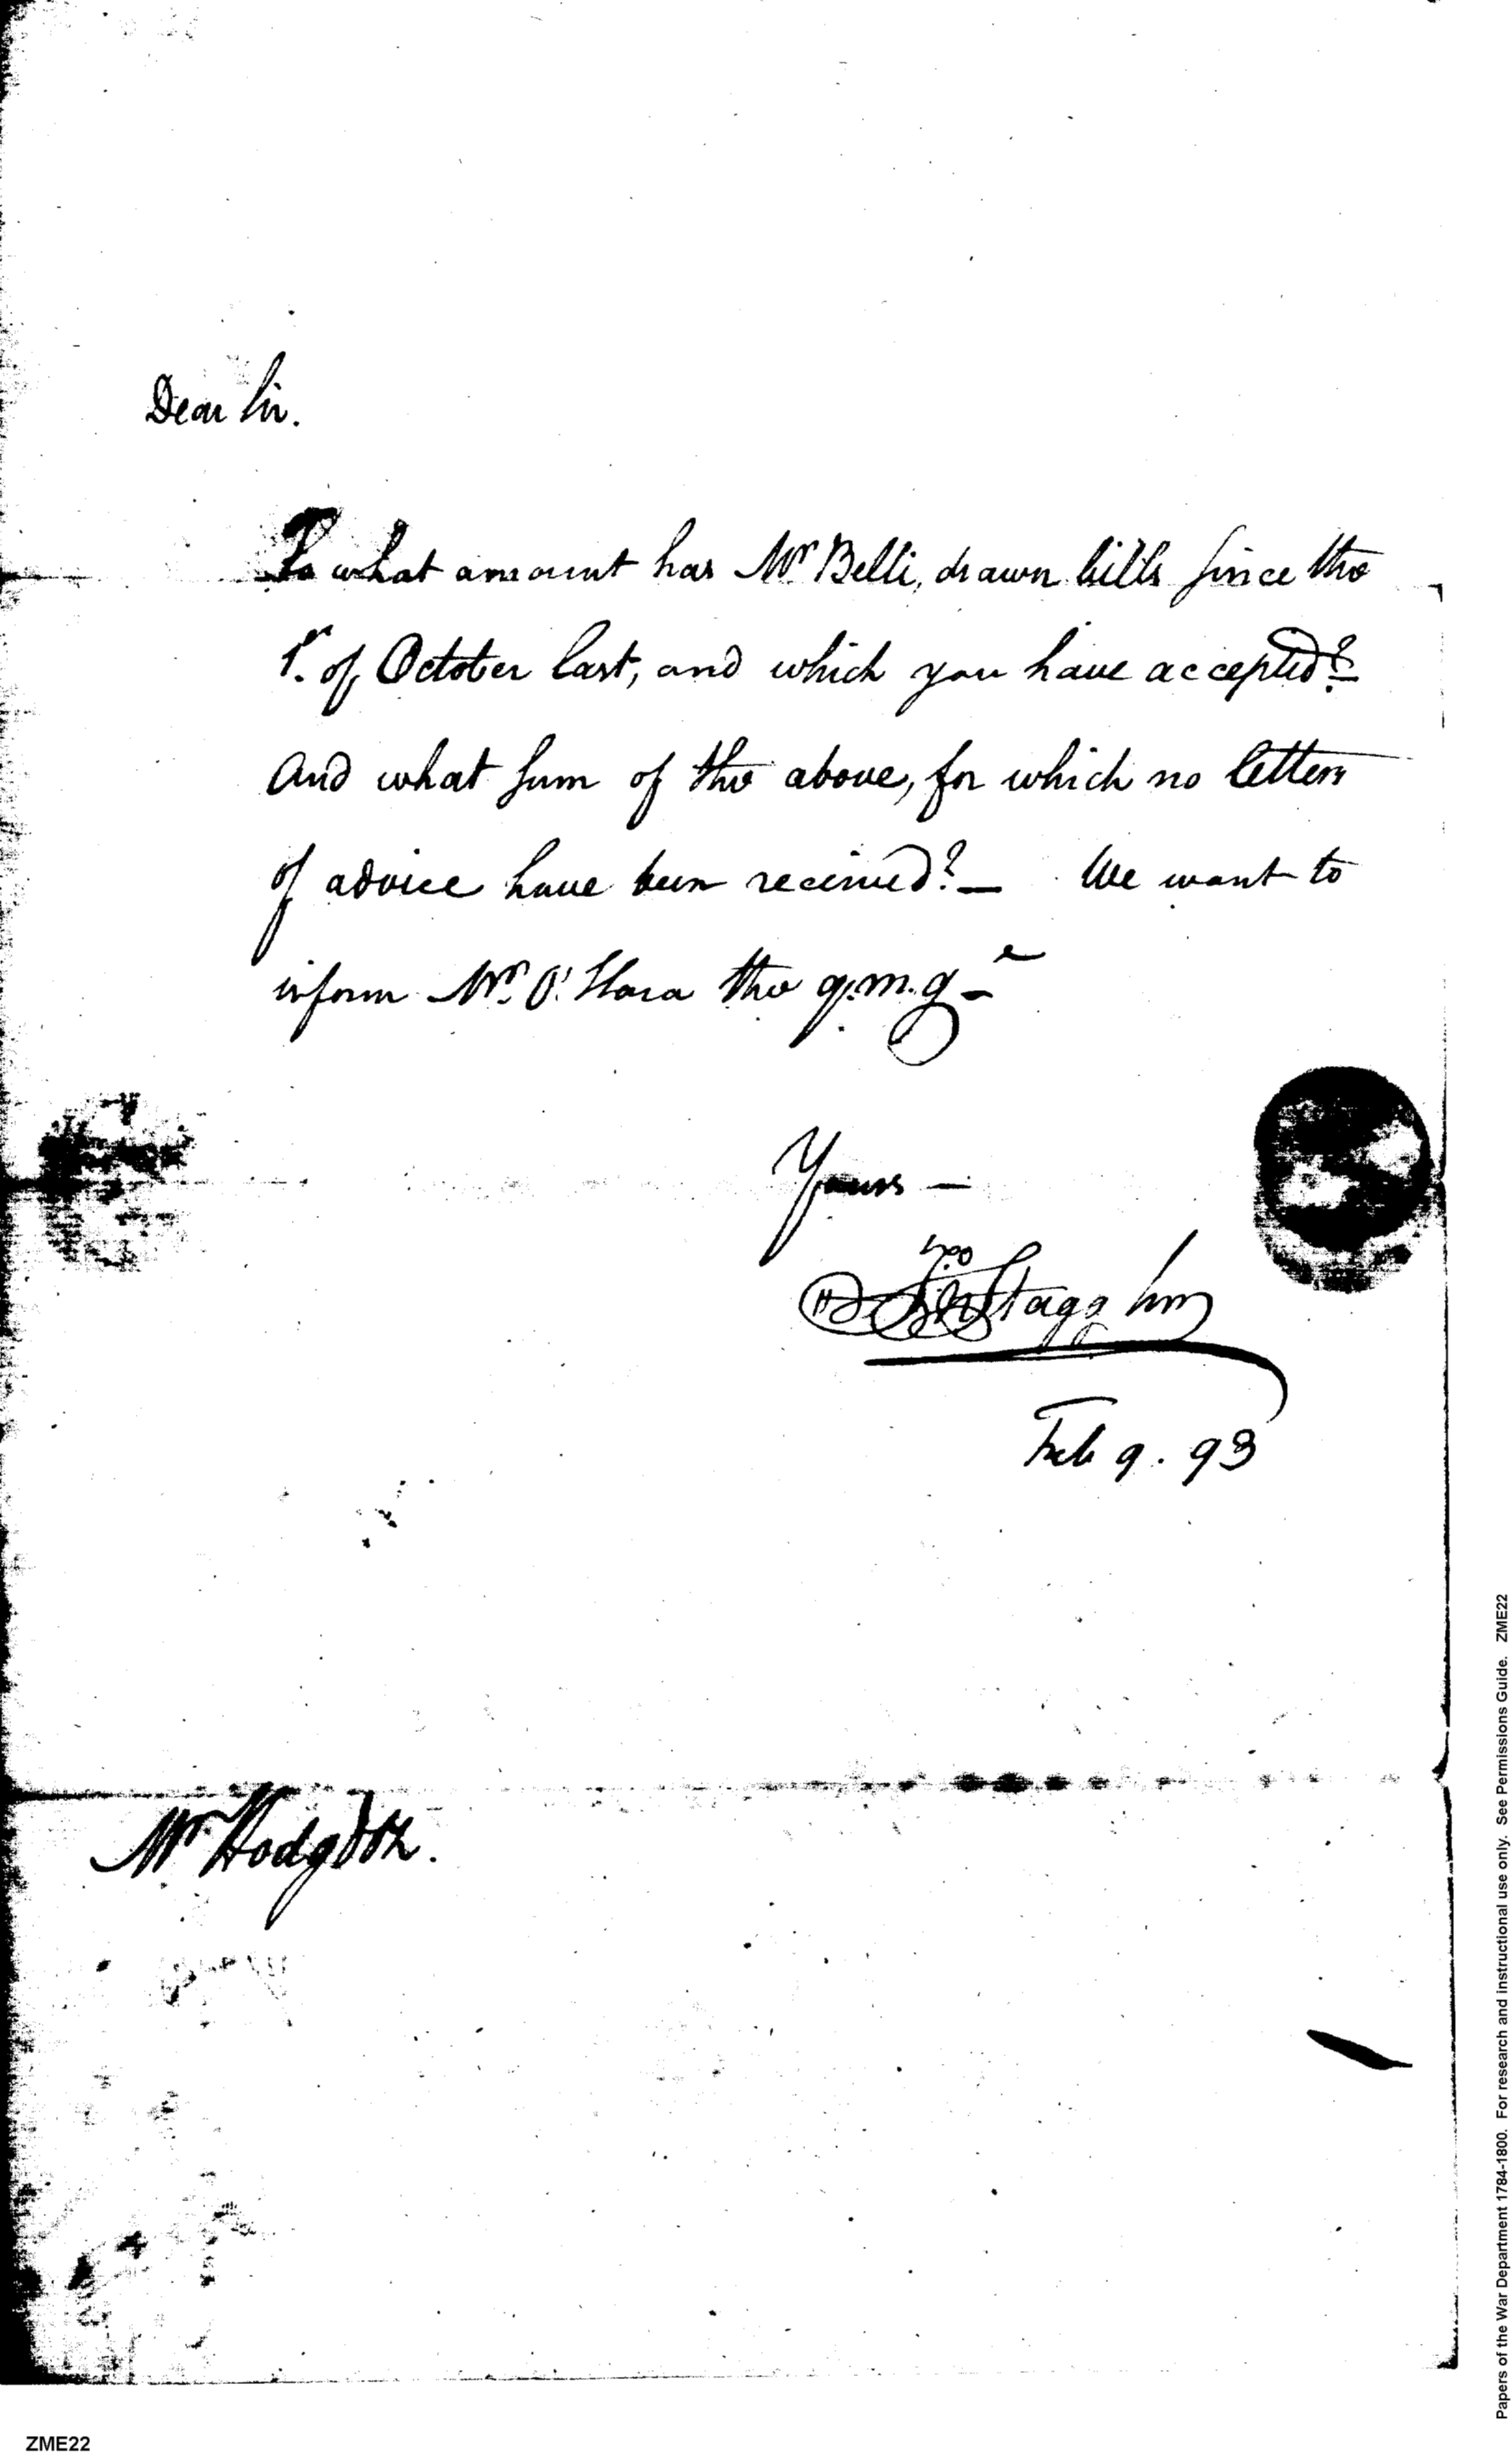 Dear Sir.
To what amount has Mr. Belli, drawn bills since the
1st. of October last, and which you have accepted?
And what sum of the above, for which no letters
of advice have been received? —  We want to
inform Mr. O'Hara the q.m.g —
Yours —
Jno Stagg Jun
Feb 9. 93
Mr Hodgdon.
Papers of the War Department 1784-1800. For research and instructional use only. See Permissions Guide. ZME22
ZME22